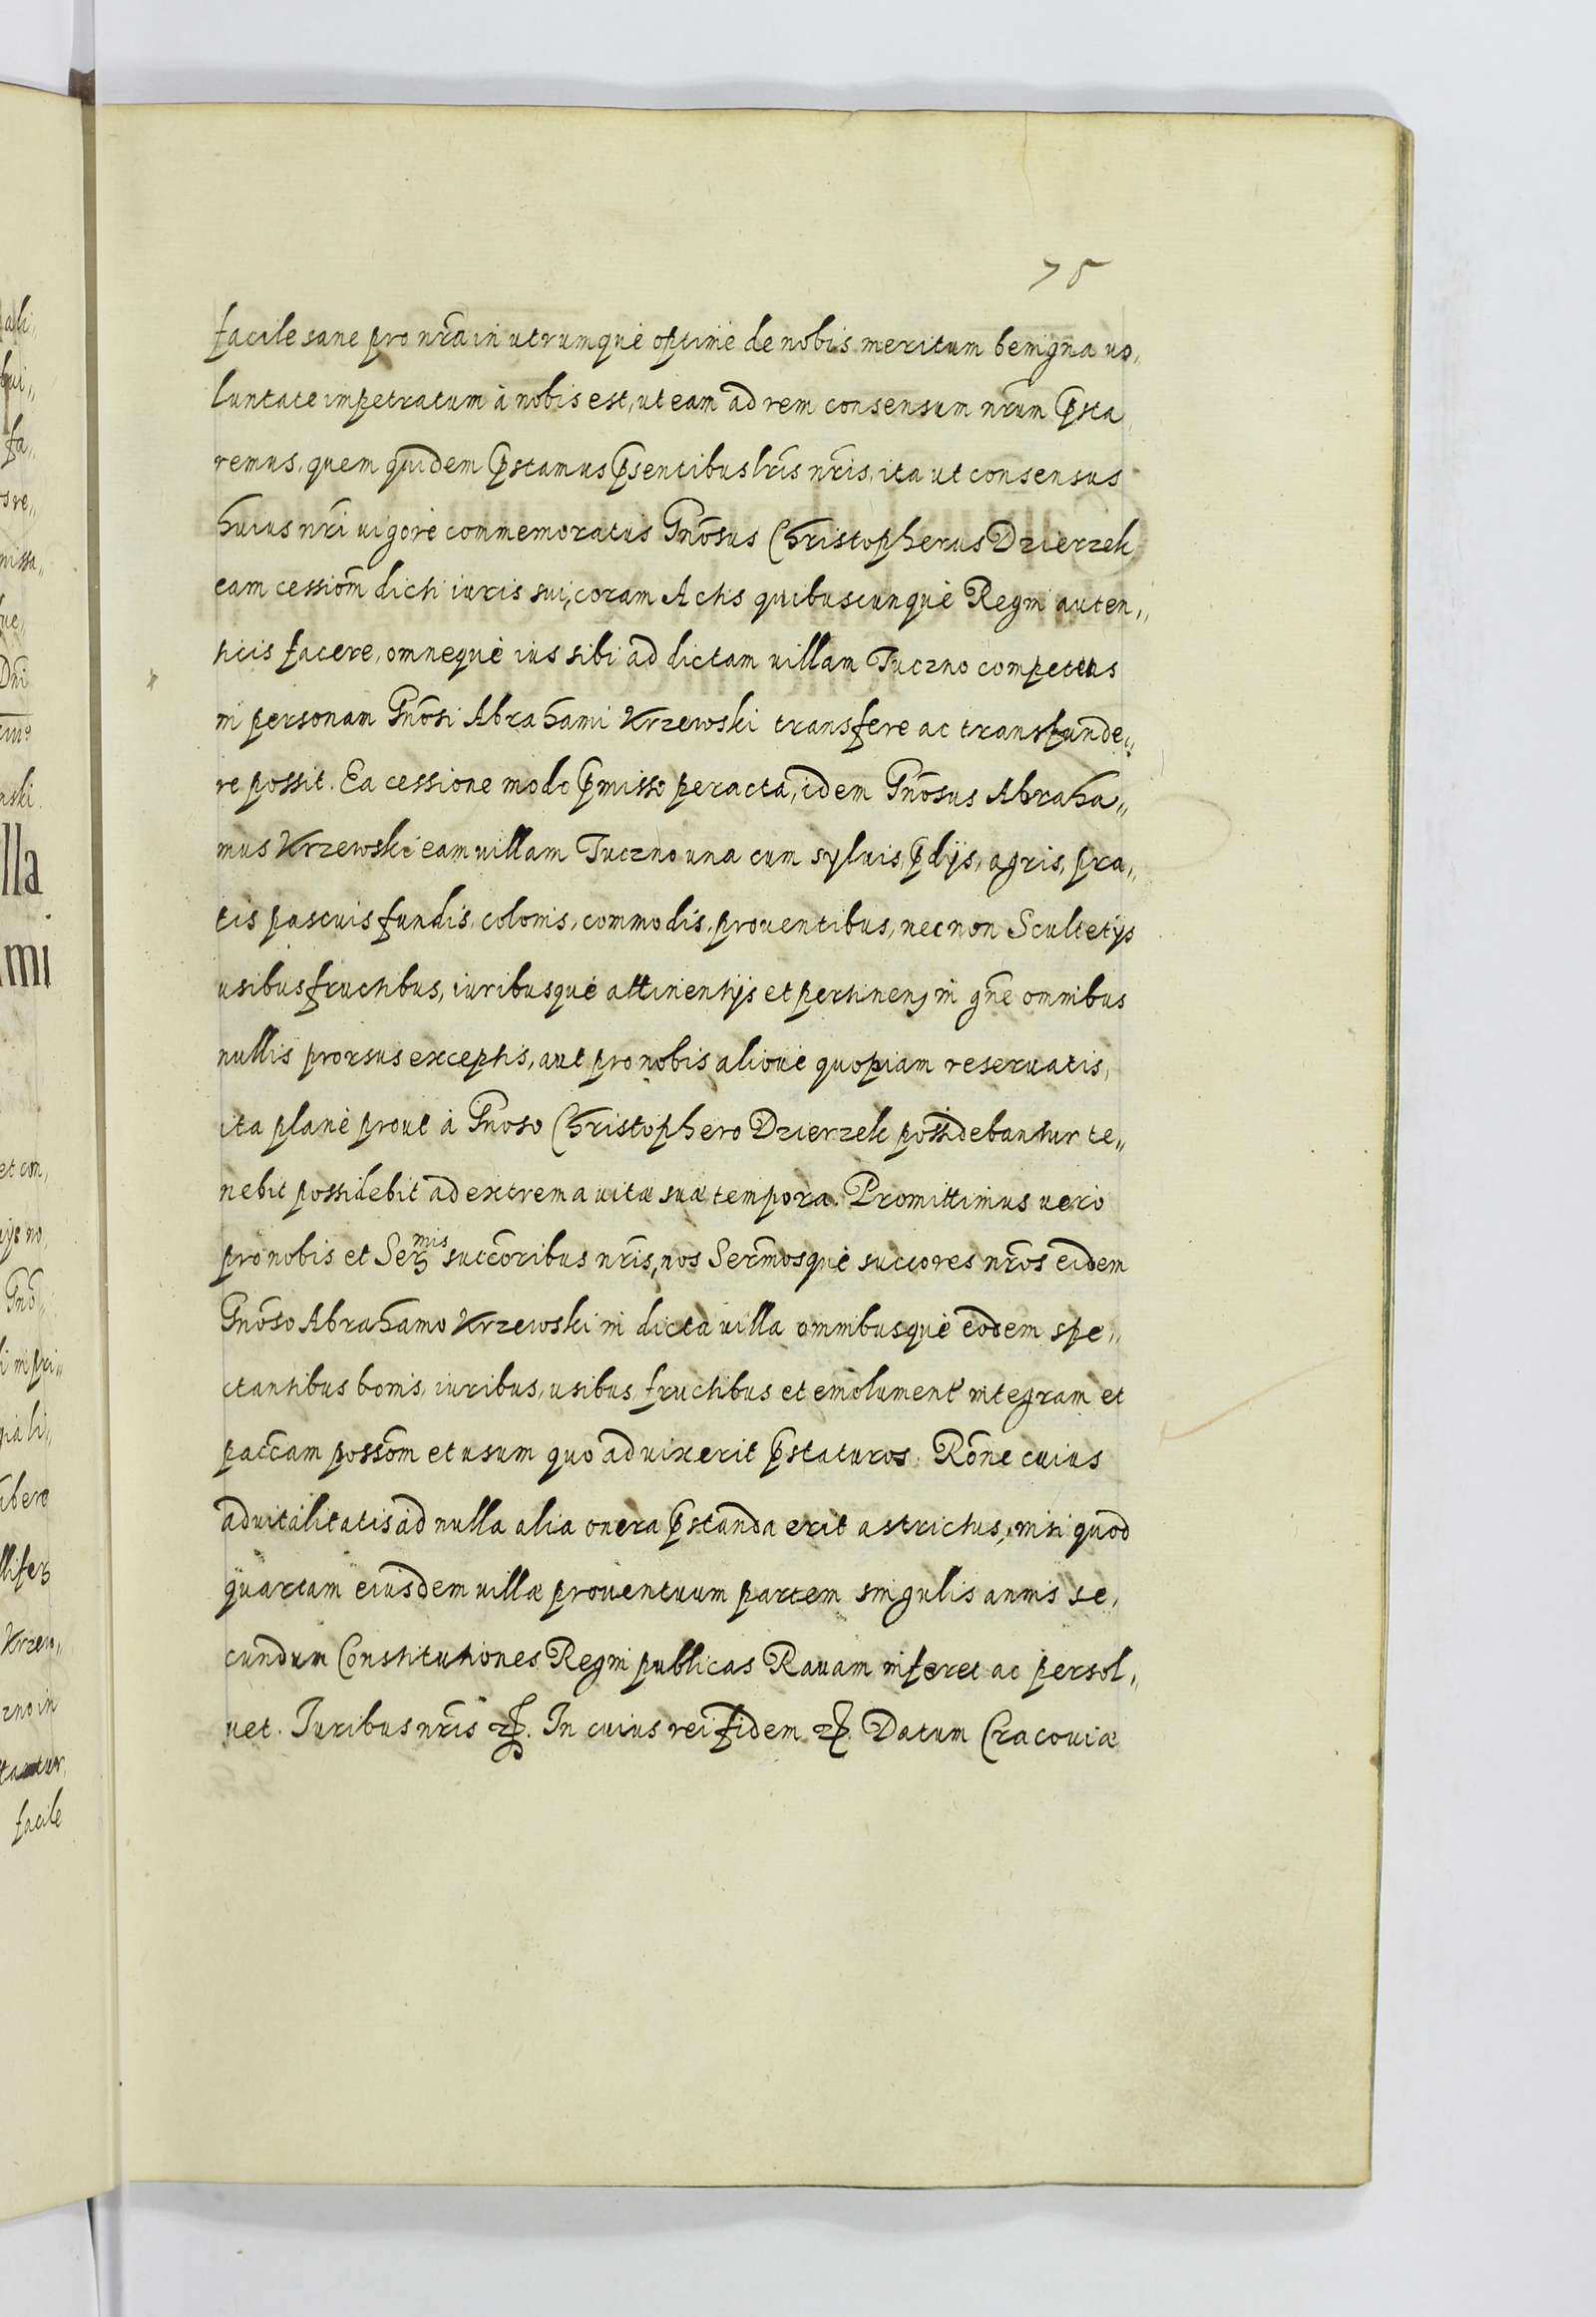 75
facile sane pro nrã in utrumquè optimè de nobis meritum benigna uo,,
luntate impetratum à nobis est, ut eam ad rem consensum nrũm p̃sta
remus, quem quidem p̃stamus p̃sentibus lr̃is nr̃is, ita ut consensus
huius nr̃i uigorè commemoratus Gnõsus Christopherus Dzierzek
eam cessiom̃ dicti iuris sui, coram Actis quibuscunquè Regni auten,,
ticis facere, omnequè ius sibi ad dictam uillam Tuczno competens
in personam Gnõsi Abrahami Krzewski transfere ac transfunde,,
re possit. Ea cessione modo p̃misso peracta, idem Gnõsus Abraha,,
mus Krzewski eam uillam Tuczno una cum syluis, p̃dijs, agris, pra,,
tis pascuis fundis, colonis, commodis, prouentibus, necnon Scultetijs
usibus fructibus, iuribusquè attinentijs et pertinen, in gñe omnibus
nullis prorsus exceptis, aut pro nobis aliouè quopiam reseruatis,
ita planè prout à Gnoso Christophero Dzierzek possidebantur te,,
nebit possidebit ad extrema uitæ suæ tempora. Promittimus uero
pro nobis et Ser mis succõribus nr̃is, nos Serm̃osquè succores nr̃os eidem
Gnõso Abrahamo Krzewski in dicta uilla omnibusquè eodem spe,,
ctantibus bonis, iuribus, usibus fructibus et emolument integram et
pacc̃am possom̃ et usum quo ad uixerit p̃staturos. Rõne cuius
aduitalitatis ad nulla alia onera p̃standa erit astrictus, nisi quod
quartam eiusdem uillæ prouentuum partem singulis annis se,,
cundum Constitutiones Regni publicas Rauam inferet ac persol,,
uet. Iuribus nr̃is etc. In cuius rei fidem etc. Datum Cracouiæ
ali
bui,,
fa,,
s re,,
missa,,
ue,
Dni
nski
lla
mi
et con,
ijs no,
Gnõ,,
i in pri,,
ia li,,
ibero
Krzew,,
zno in
facile